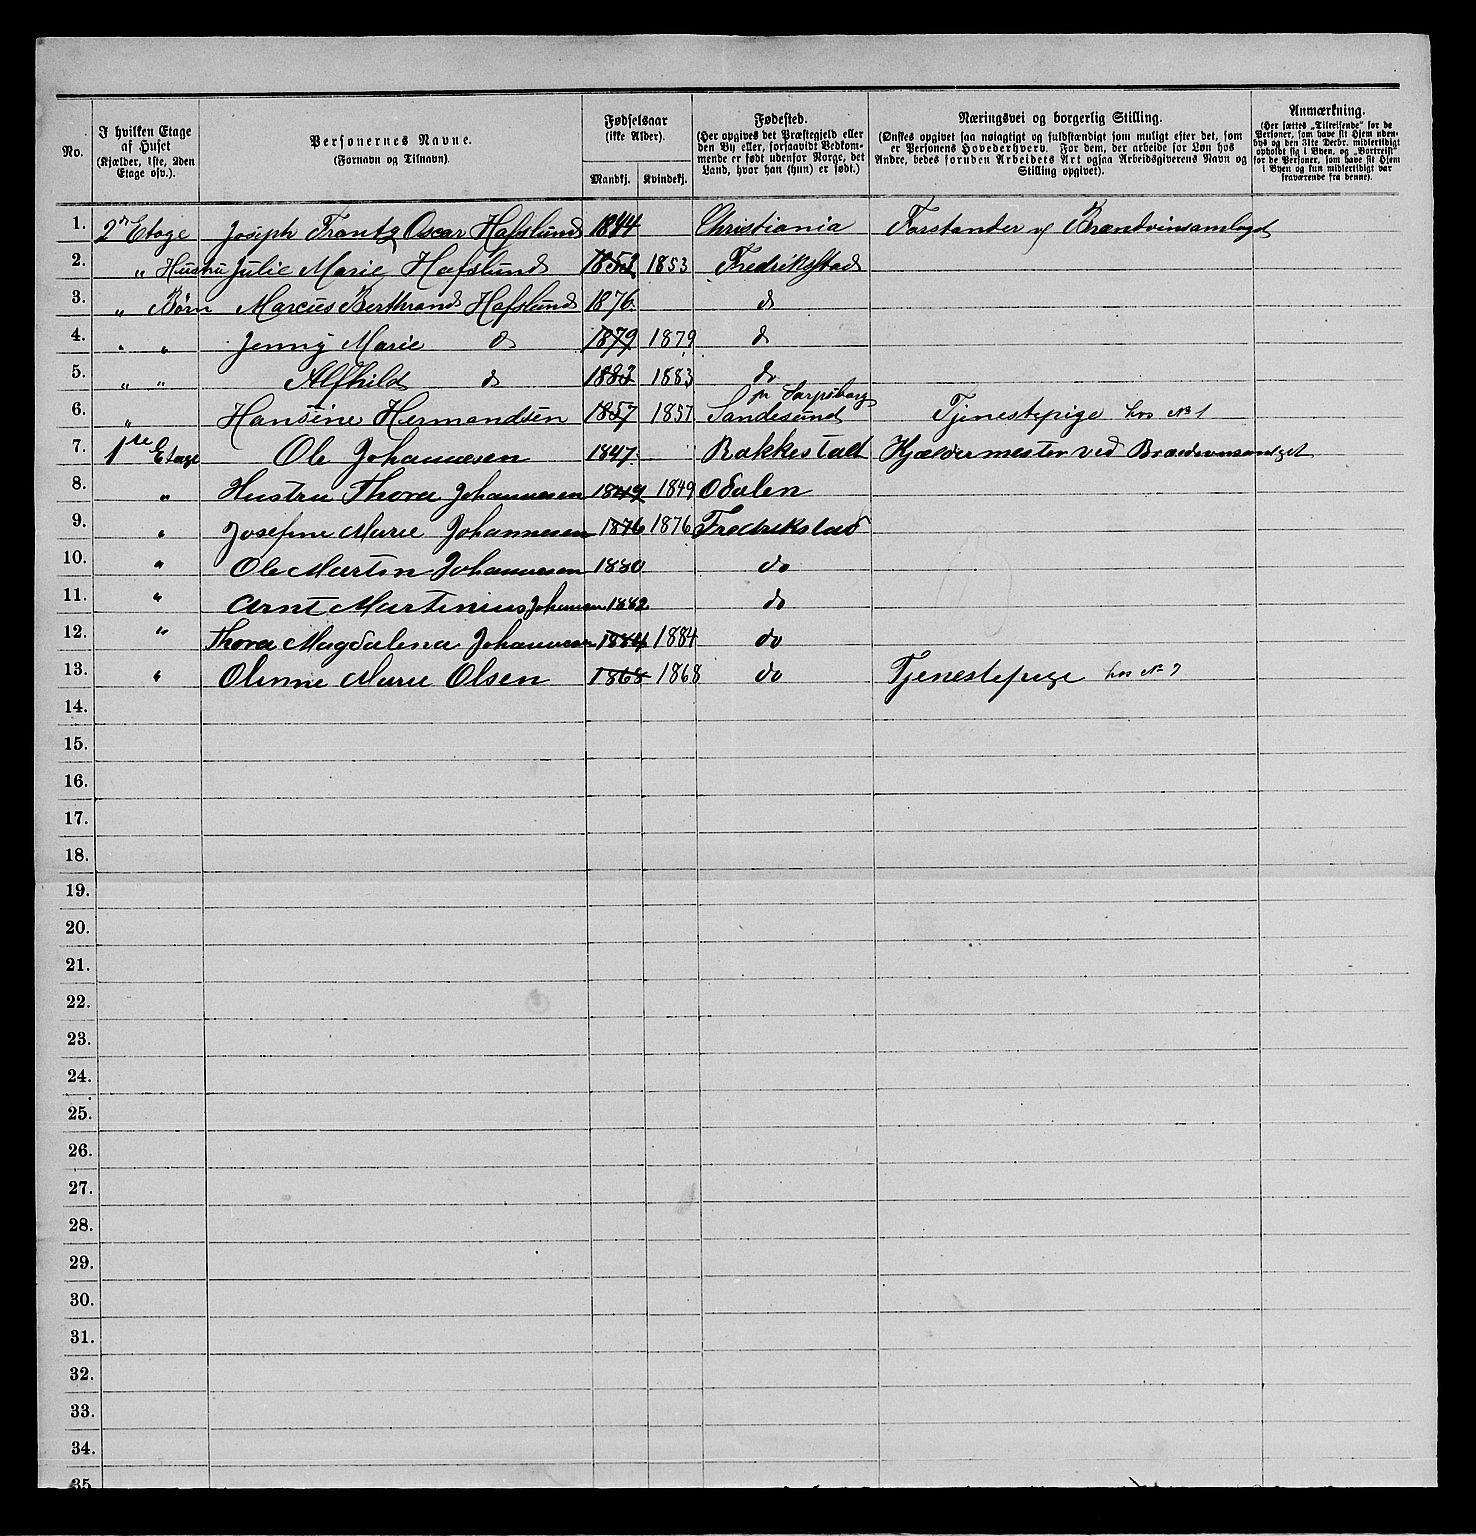 No. | I hvilken Etage af Huset (Kjælder, 1ste, 2den Etage osv.). | Personernes Navne. (Fornavn og Tilnavn). | Fødselsaar (ikke Alder). Mandkj. | Kvindekj. | Fødested. (Her opgives det Præstegjeld eller den By eller, forsaavidt Vedkommende er født udenfor Norge, det Land, hvor han (hun) er født.) | Næringsvei og borgerlig Stilling. (Ønskes opgivet saa nøiagtigt og fuldstændigt som muligt efter det, som er Personens Hovederhverv. For dem, der arbeide for Løn hos Andre, bedes foruden Arbeidets Art ogsaa Arbeidsgiverens Navn og Stilling opgivet). | Anmærkning. (Her sættes „Tilreisende" for de Personer, som have sit Hjem udenbys og den 31te Decbr. midlertidigt opholdt sig i Byen, og „Bortreist" for de Personer, som have sit Hjem i Byen og kun midlertidigt var fraværende fra denne).
1. 2n Etage Joseph Frantz Oscar Hafslund 1844 Christiania Forstander v/ Brændvinsamlaget
2. " Hustru Julie Marie Hafslund 1853 1853 Fredrikstad
3. " Børn Marcus Berthrand Hafslund 1876. do
4. " " Jenny Marie do 1879 1879 do
5. " " Alfhild do 1883 1883 do
6. " Hansine Hermandsen 1857 1857 Sandesund pr Sarpsborg Tjenestepige hos No 1
7. 1ste Etage Ole Johannesen 1847. Rakkestad Kjældermester ved Brædevinsamlget
8. " Hustru Thora Johannesen 1849 1849 Odalen
9. " Josefine Marie Johannesen 1876 1876 Fredrikstad
10. " Ole Martin Johannesen 1880 do
11. " Arnt Martinius Johannesen 1882 do
12. " Thora Magdalena Johannesen 1884 1884 do
13. " Olinne Marie Olsen 1868 1868 do Tjenestepige hos No 7
14.
15.
16.
17.
18.
19.
20.
21.
22.
23.
24.
25.
26.
27.
28.
29.
30.
31.
32.
33.
34.
35